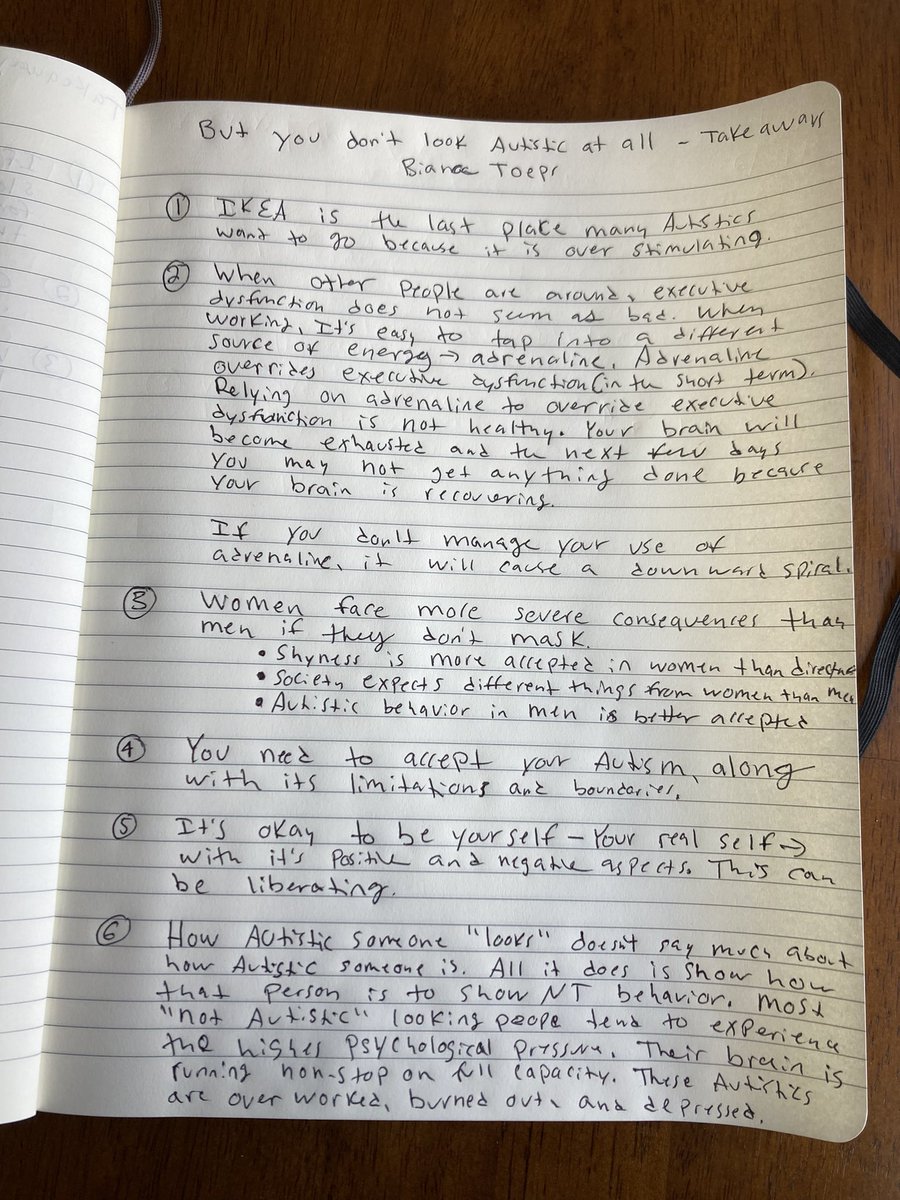 But you don't look Autistic at all - Takeaways
Bianca Toeps
① IKEA is the last place many Autstics
want to go because it is over stimulating.
② When other people are around, executive
dysfunction does not seem as bad. When
working, It's easy to tap into a different
source of energy → adrenaline. Adrenaline
overrides executive dysfunction (in the short term).
Relying on adrenaline to override executive
dysfunction is not healthy. Your brain will
become exhausted and the next few days
you may not get anything done because
your brain is recovering.
If you don't manage your use of
adrenaline, it will cause a downward spiral.
③ Women face more severe consequences than
men if they don't mask.
• Shyness is more accepted in women than
• Society expects different things from women than men
• Autistic behavior in men is better accepted
④ You need to accept your Autism, along
with its limitations and boundaries.
⑤ It's okay to be yourself - Your real self →
with it's positive and negative aspects. This can
be liberating.
⑥ How Autistic someone "looks" doesn't say much about
how Autistic someone is. All it does is show how
that person is to show NT behavior. Most
"not Autistic" looking peope tend to experience
the highes psychological pressure. Their brain is
running non-stop on full capacity. These Autistics
are over worked, burned out, and depressed.